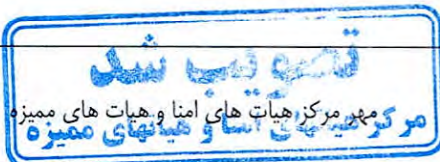 تصویب شد
مهر مرکز هیات های امنا و هیات های ممیزه
مرکز هیاتهای امنا و هیاتهای ممیزه